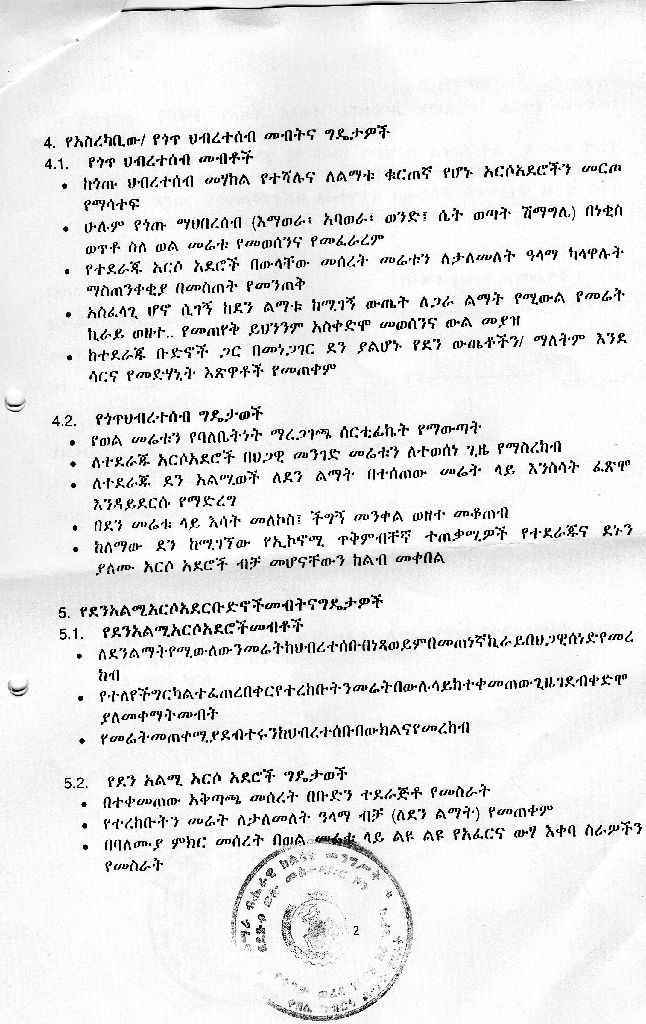 4. የአስረካቢው/ የጎጥ ህብረተሰብ መብትና ግዴታዎች
4.1. የጎጥ ህብረተሰብ መብቶች
• ከጎጡ ህብረተሰብ መሃከል የተሻሉና ለልማቱ ቁርጠኛ የሆኑ አርሶአደሮችን መርጦ
የማሳተፍ
• ሁሉም የጎጡ ማህበረሰብ (እማወራ፣ አባወራ፣ ወንድ፣ ሴት ወጣት ሽማግሌ) በነቂስ
ወጥቶ ስለ ወል መሬቱ የመወሰንና የመፈራረም
• የተደራጁ አርሶ አደሮች በውላቸው መሰረት መሬቱን ለታለመለት ዓላማ ካላዋሉት
ማስጠንቀቂያ በመስጠት የመንጠቅ
• አስፈላጊ ሆኖ ሲገኝ ከደን ልማቱ ከሚገኝ ውጤት ለጋራ ልማት የሚውል የመሬት
ኪራይ ወዘተ.. የመጠየቅ ይህንንም አስቀድሞ መወሰንና ውል መያዝ
• ከተደራጁ ቡድኖች ጋር በመነጋገር ደን ያልሆኑ የደን ውጤቶችን/ ማለትም እንደ
ሳርና የመድሃኒት እጽዋቶች የመጠቀም
4.2. የጎጥህብረተሰብ ግዴታወች
• የወል መሬቱን የባለቤትነት ማረጋገጫ ሰርቲፊኬት የማውጣት
• ለተደራጁ አርሶአደሮች በህጋዊ መንገድ መሬቱን ለተወሰነ ጊዜ የማስረከብ
• ለተደራጁ ደን አልሚወች ለደን ልማት በተሰጠው መሬት ላይ እንስሳት ፈጽሞ
እንዳይደርሱ የማድረግ
• በደን መሬቱ ላይ እሳት መለኮስ፣ ችግኝ መንቀል ወዘተ መቆጠብ
• ከለማው ደን ከሚገኘው የኢኮኖሚ ጥቅምብቸኛ ተጠቃሚዎች የተደራጁና ደኑን
ያለሙ አርሶ አደሮች ብቻ መሆናቸውን ከልብ መቀበል
5. የደንአልሚአርሶአደርቡድኖችመብትናግዴታዎች
5.1. የደንአልሚአርሶአደሮችመብቶች
• ለደንልማትየሚውለውንመሬትከህብረተሰቡበነጻወይምበመጠነኛኪራይበህጋዊሰነድየመረ
ከብ
• የተለየችግርካልተፈጠረበቀርየተረከቡትንመሬትበውሉላይከተቀመጠውጊዜገደብቀድሞ
ያለመቀማትመብት
• የመሬትመጠቀሚያደብተሩንከህብረተሰቡበውክልናየመረከብ
5.2. የደን አልሚ አርሶ አደሮች ግዴታወች
• በተቀመጠው አቅጣጫ መሰረት በቡድን ተደራጅቶ የመስራት
• የተረከቡትን መሬት ለታለመለት ዓላማ ብቻ (ለደን ልማት) የመጠቀም
• በባለሙያ ምክር መሰረት በወል መሬቱ ላይ ልዩ ልዩ የአፈርና ውሃ እቀባ ስራዎችን
የመስራት
2